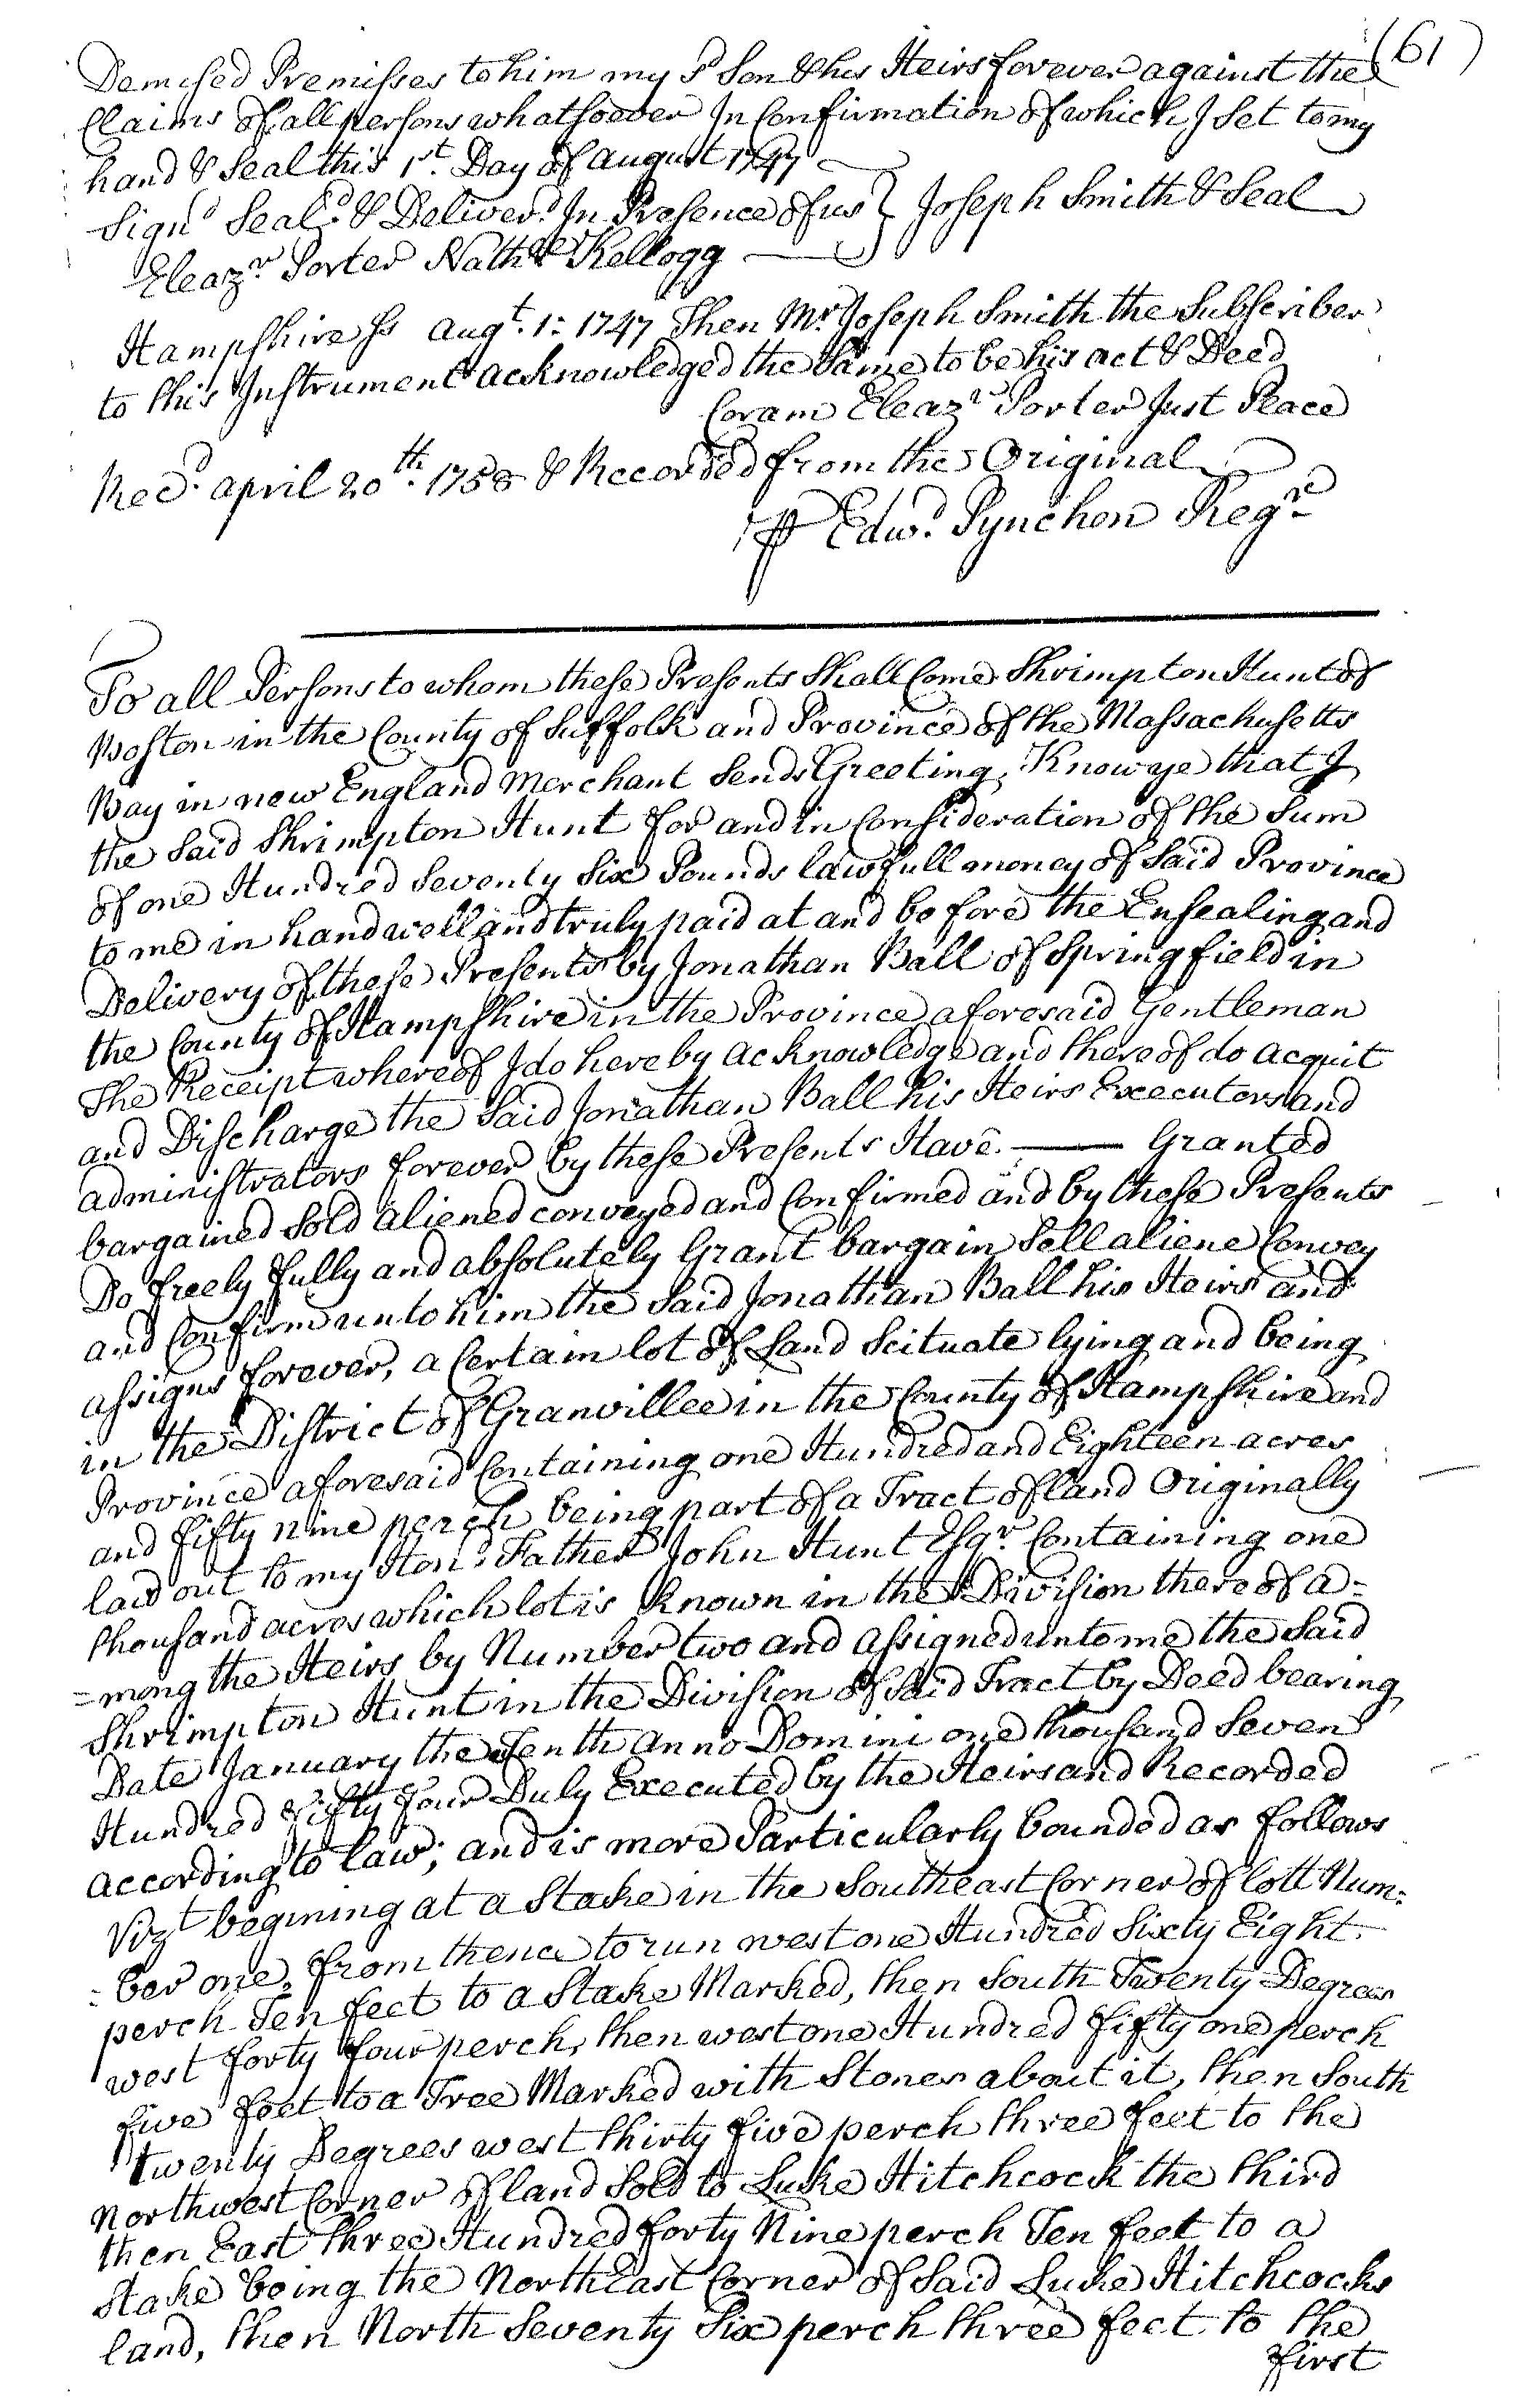 (61)
Demised Premisses to him my sd Son & his Heirs forever against the
Claims of all persons whatsoever In Confirmation of which I set to my
hand & Seal this 1st. Day of august 1747
Signd Seald. & Deliverd. In Presence of us } Joseph Smith & Seal
Eleazr Porter Nathll Kellogg
Hampshire ss augt. 1: 1747 Then Mr. Joseph Smith the Subscriber
to this Instrument acknowledged the Same to be his act & Deed
Coram Eleazr Porter Just Peace
Recd. april 20th. 1758 & Recorded from the Original
P Edwd. Pynchon Regr
To all Persons to whom these Presents Shall Come Shrimpton Hunt of
Boston in the County of Suffolk and Province of the Massachusetts
Bay in new England Merchant Sends Greeting, Know ye that I
the Said Shrimpton Hunt for and in Consideration of the Sum
of one Hundred Seventy Six Pounds lawfull money of Said Province
to me in hand well and truly paid at and before the Ensealing and
Delivery of these Presents by Jonathan Ball of Springfield in
the County of Hampshire in the Province aforesaid Gentleman
The Receipt whereof I do hereby acknowledge and thereof do acquit
and Discharge the Said Jonathan Ball his Heirs Executors and
administrators forever by these Presents Have. —— Granted
bargained Sold aliened conveyed and Confirmed and by these Presents
Do freely fully and absolutely Grant bargain Sell aliene Convey
and Confirm unto him the Said Jonathan Ball his Heirs and
assigns forever, a Certain lot of Land Scituate lying and being
in the District of Granvillee in the County of Hampshire and
Province aforesaid Containing one Hundred and Eighteen acres
and fifty nine perch being part of a Tract of land Originally
laid out to my Hond. Father John Hunt Esqr. Containing one
thousand acres which lot is known in the Division thereof a=
=mong the Heirs by Number two and assigned unto me the Said
Shrimpton Hunt in the Division of Said Tract by Deed bearing
Date January the Tenth anno Domini one thousand Seven
Hundred fifty four Duly Executed by the Heirs and Recorded
according to law; and is more Particularly bounded as follows
Vizt begining at a Stake in the Southeast Corner of lott Num=
=ber one, from thence to run west one Hundred Sixty Eight
perch Ten feet to a Stake Marked, then South Twenty Degrees
west forty four perch, then west one Hundred fifty one perch
five feet to a Tree Marked with Stones about it, then South
twenty Degrees west thirty five perch three feet to the
northwest Corner of land Sold to Luke Hitchcock the third
then East three Hundred forty Nine perch Ten feet to a
Stake being the NorthEast Corner of Said Luke Hitchcocks
land, then North Seventy Six perch three feet to the
first